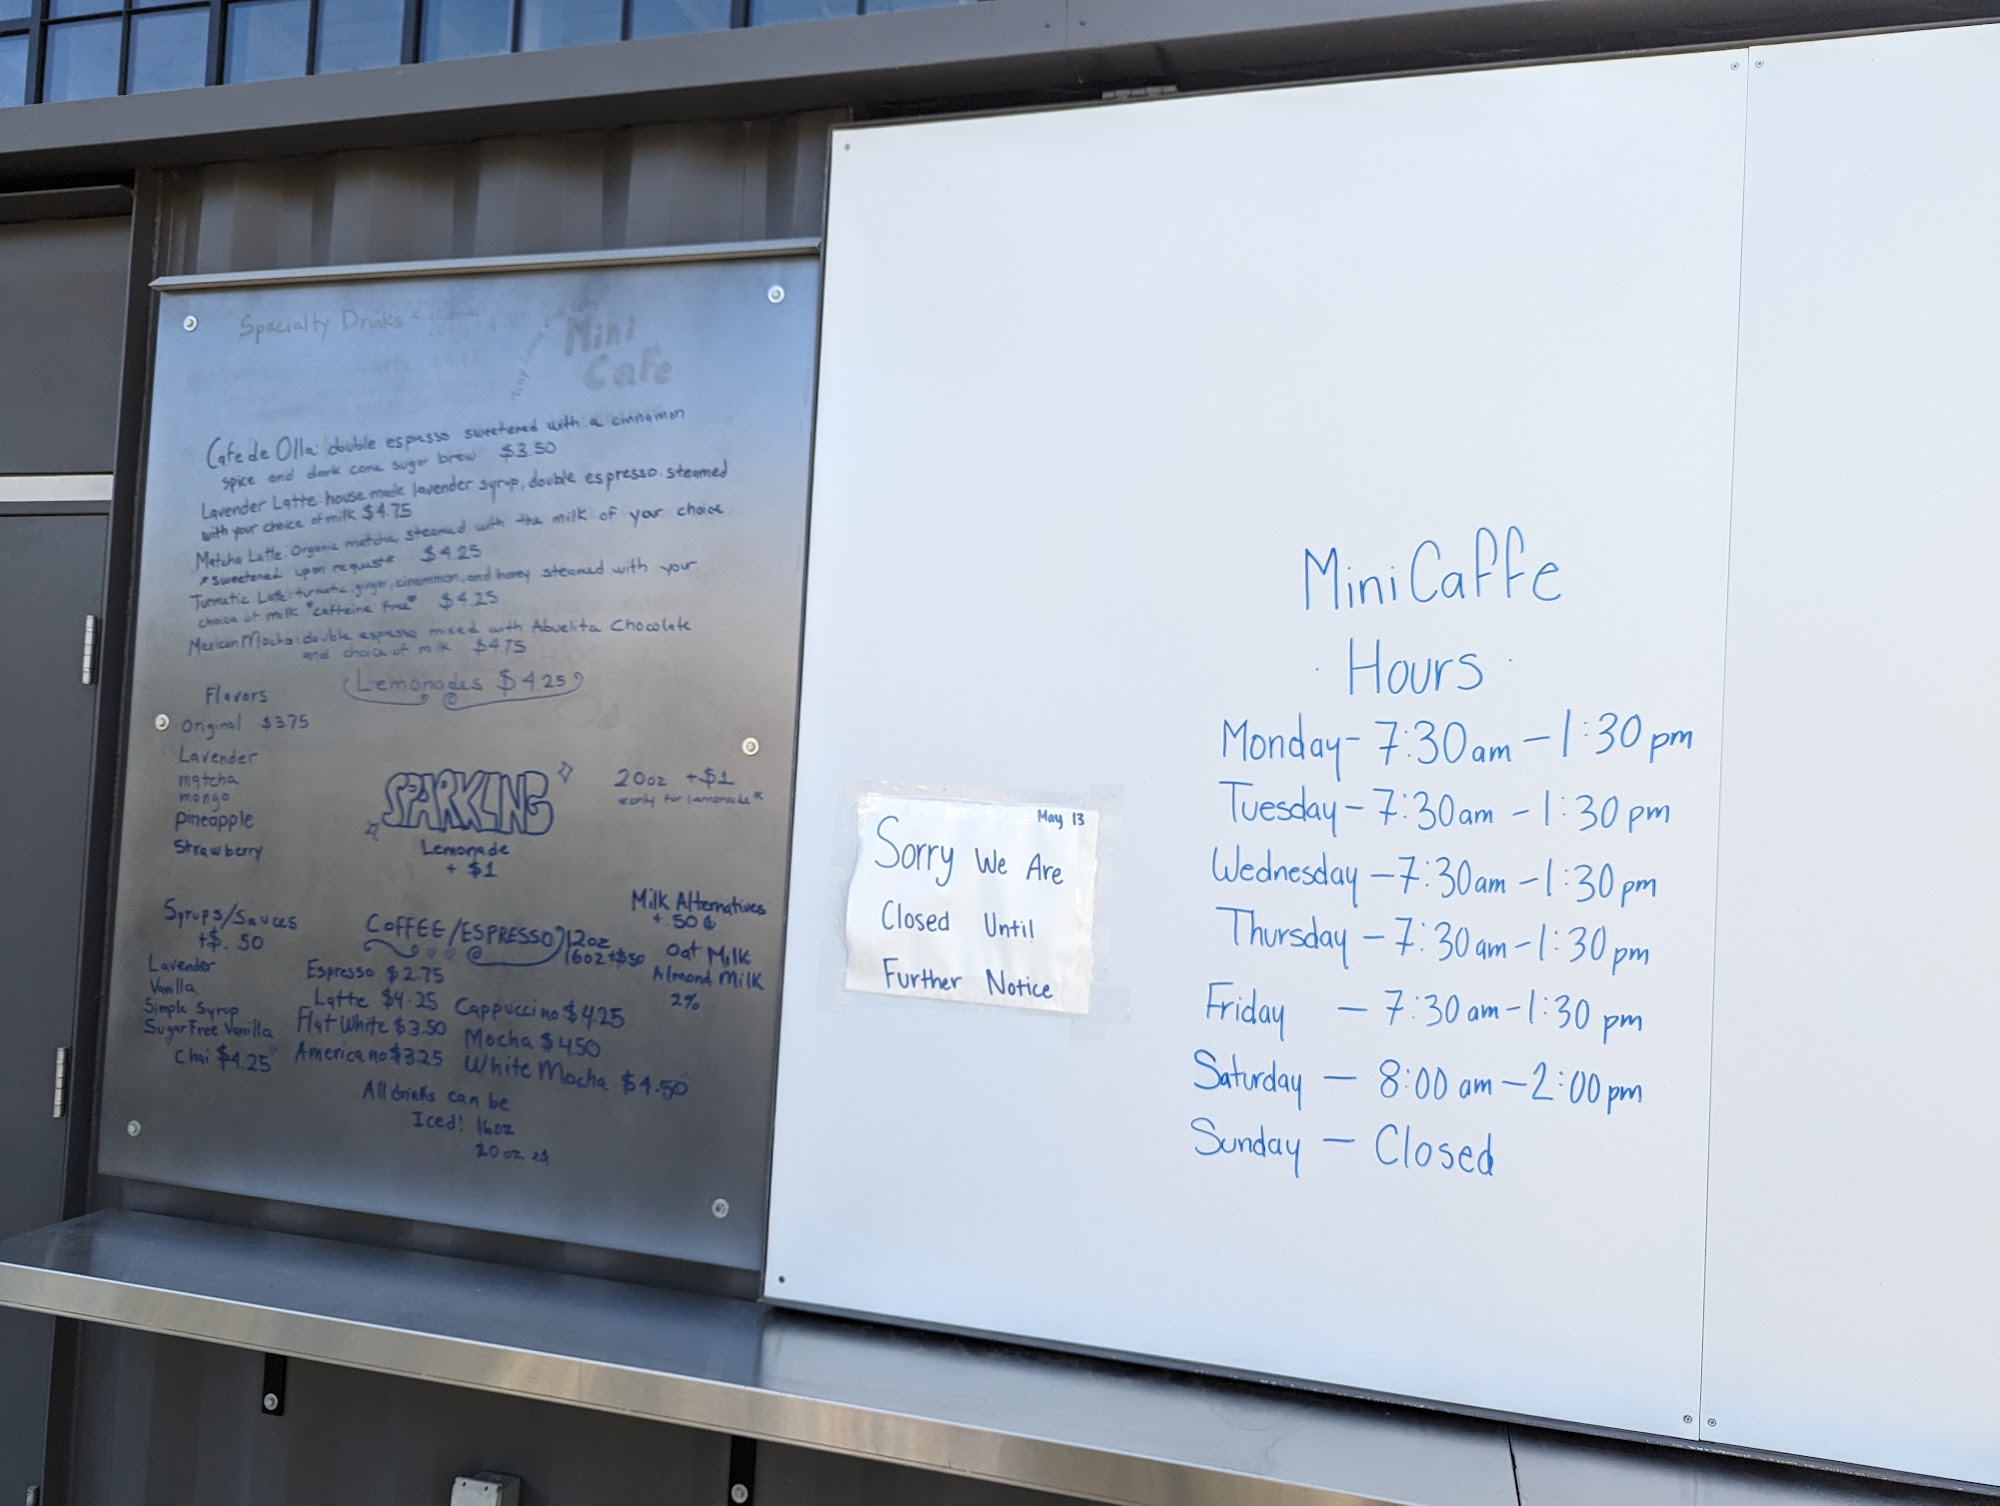 Specialty Drinks
Mini
Cafe
Cafe de Olla: double espresso sweetened with a cinnamon
spice and dark cane sugar brew $3.50
Lavender Latte: house made lavender syrup, double espresso. steamed
with your choice of milk $4.75
Matcha Latte: Organic matcha, steamed with the milk of your choice
*sweetened upon request* $4.25
Turmatic Latte: turmatic, ginger, cinammon, and honey steamed with your
choice of milk "caffeine free" $4.25
Mexican Mocha: double espresso mixed with Abuelita Chocolate
and choice of milk $4.75
Lemonades $4.25
Flavors
Original $3.75
Lavender
matcha
mango
pineapple
Strawberry
SPARKLING
Lemonade
+ $1
20oz +$1
*only for lemonade*
Syrups/Sauces
+$.50
Lavender
Vanilla
Simple Syrup
Sugar Free Vanilla
Chai $4.25
COFFEE/ESPRESSO
12oz
16oz +$.50
Espresso $2.75
Latte $4.25
Flat White $3.50
Americano $3.25
Cappuccino $4.25
Mocha $4.50
White Mocha $4.50
Milk Alternatives
+.50¢
Oat Milk
Almond Milk
2%
All drinks can be
Iced! 16oz
20oz +$1
May 13
Sorry We Are
Closed Until
Further Notice
Mini Caffe
Hours
Monday- 7:30am - 1:30pm
Tuesday - 7:30am - 1:30pm
Wednesday - 7:30am - 1:30pm
Thursday - 7:30am - 1:30pm
Friday - 7:30am - 1:30pm
Saturday - 8:00am - 2:00pm
Sunday - Closed